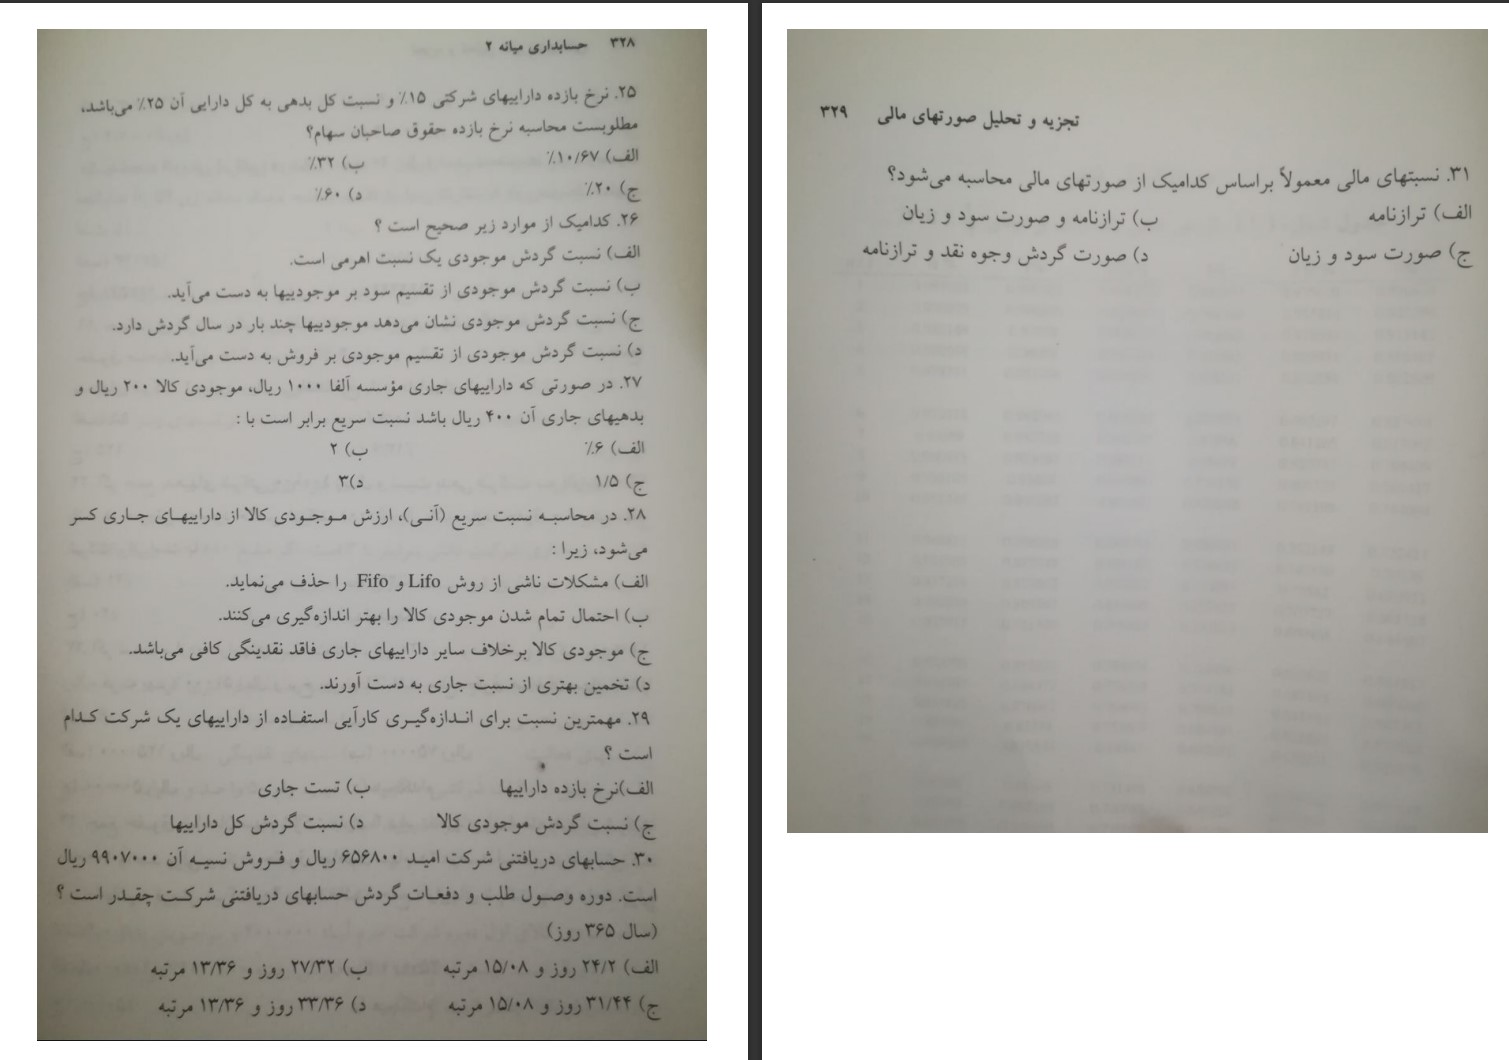 ۳۲۸ حسابداری میانه ۲
۲۵. نرخ بازده داراییهای شرکتی ۱۵٪ و نسبت کل بدهی به کل دارایی آن ۲۵٪ می‌باشد،
مطلوبست محاسبه نرخ بازده حقوق صاحبان سهام؟
الف) ۱۰/۶۷٪ ب) ۳۲٪
ج) ۲۰٪ د) ۶۰٪
۲۶. کدامیک از موارد زیر صحیح است ؟
الف) نسبت گردش موجودی یک نسبت اهرمی است.
ب) نسبت گردش موجودی از تقسیم سود بر موجودییها به دست می‌آید.
ج) نسبت گردش موجودی نشان می‌دهد موجودییها چند بار در سال گردش دارد.
د) نسبت گردش موجودی از تقسیم موجودی بر فروش به دست می‌آید.
۲۷. در صورتی که داراییهای جاری مؤسسه آلفا ۱۰۰۰ ریال، موجودی کالا ۲۰۰ ریال و
بدهیهای جاری آن ۴۰۰ ریال باشد نسبت سریع برابر است با :
الف) ۶٪ ب) ۲
ج) ۱/۵ د)۳
۲۸. در محاسبه نسبت سریع (آنی)، ارزش موجودی کالا از داراییهای جاری کسر
می‌شود، زیرا :
الف) مشکلات ناشی از روش Lifo و Fifo را حذف می‌نماید.
ب) احتمال تمام شدن موجودی کالا را بهتر اندازه‌گیری می‌کنند.
ج) موجودی کالا برخلاف سایر داراییهای جاری فاقد نقدینگی کافی می‌باشد.
د) تخمین بهتری از نسبت جاری به دست آورند.
۲۹. مهمترین نسبت برای اندازه‌گیری کارآیی استفاده از داراییهای یک شرکت کدام
است ؟
الف)نرخ بازده داراییها ب) تست جاری
ج) نسبت گردش موجودی کالا د) نسبت گردش کل داراییها
۳۰. حسابهای دریافتنی شرکت امید ۶۵۶۸۰۰ ریال و فروش نسیه آن ۹۹۰۷۰۰۰ ریال
است. دوره وصول طلب و دفعات گردش حسابهای دریافتنی شرکت چقدر است ؟
(سال ۳۶۵ روز)
الف) ۲۴/۲ روز و ۱۵/۰۸ مرتبه ب) ۲۷/۳۲ روز و ۱۳/۳۶ مرتبه
ج) ۳۱/۴۴ روز و ۱۵/۰۸ مرتبه د) ۳۳/۳۶ روز و ۱۳/۳۶ مرتبه
تجزیه و تحلیل صورتهای مالی ۳۲۹
۳۱. نسبتهای مالی معمولاً براساس کدامیک از صورتهای مالی محاسبه می‌شود؟
الف) ترازنامه ب) ترازنامه و صورت سود و زیان
ج) صورت سود و زیان د) صورت گردش وجوه نقد و ترازنامه